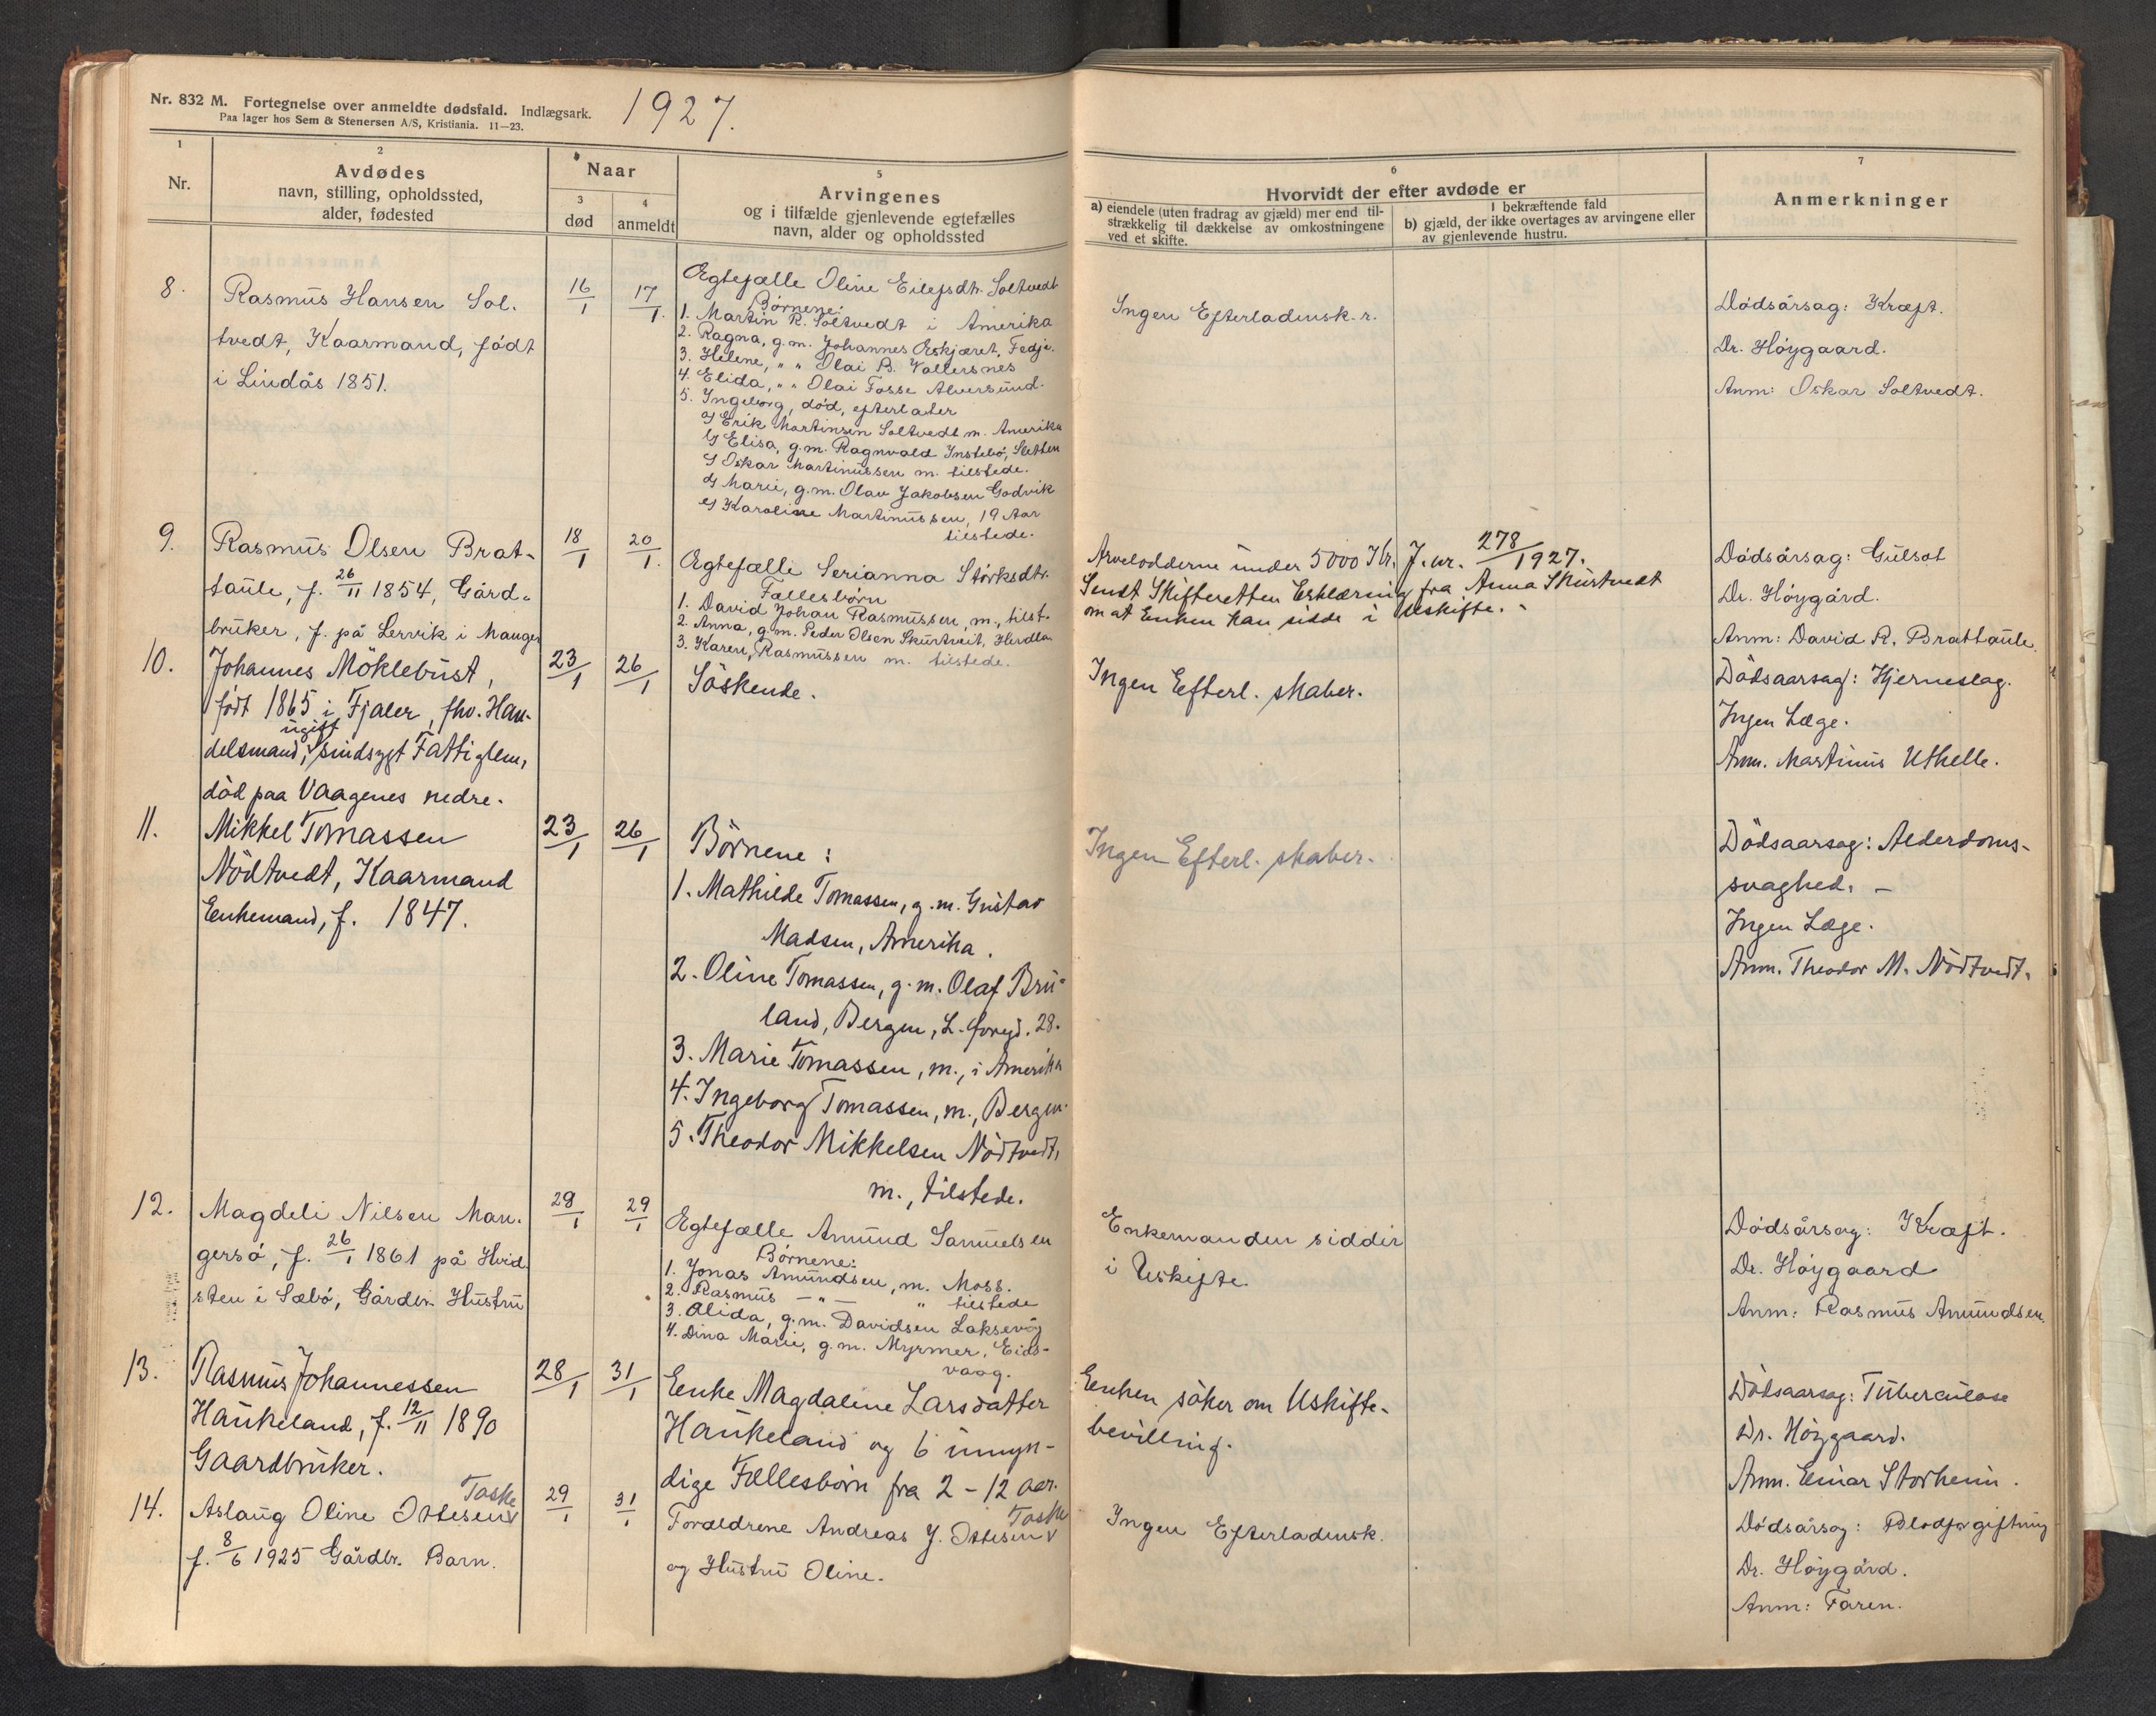 Nr. 832 M. Fortegnelse over anmeldte dødsfald. Indlægsark.
Paa lager hos Sem & Stenersen A/S, Kristiania. 11—23.
1927.
1
Nr.
2
Avdødes
navn, stilling, opholdssted,
alder, fødested
Naar
3
død
4
anmeldt
5
Arvingenes
og i tilfælde gjenlevende egtefælles
navn, alder og opholdssted
6
Hvorvidt der efter avdøde er
a) eiendele (uten fradrag av gjæld) mer end til-
strækkelig til dækkelse av omkostningene
ved et skifte.
I bekræftende fald
b) gjæld, der ikke overtages av arvingene eller
av gjenlevende hustru.
7
Anmerkninger
8.
Rasmus Hansen Sol.
tvedt, Kaarmand, født
i Lindås 1851.
16/1
17/1.
Egtefælle Oline Eilefsdtr. Soltvedt
Børnene:
1. Martin R. Soltvedt i Amerika
2. Ragna, g.m. Johannes Eskjæret, Fedje.
3. Helene, " " Olai B. Vollersnes
4. Elida, " " Olai Fosse Alversund.
5. Ingeborg, død, efterlater
a) Erik Martinsen Soltvedt m. Amerika
b) Elisa, g.m. Ragnvald Instebø, Sletten
c) Oskar Martinussen m. tilstede.
d) Marie, g.m. Olav Jakobsen Godvik
e) Karoline Martinussen, 19 Aar
tilstede.
Ingen Efterladensk.r.
Dødsårsag: Kræft.
Dr. Høygaard.
Anm: Oskar Soltvedt.
9.
Rasmus Olsen Brat-
taule, f. 26/11 1854, Gård-
bruker, f. på Lervik i Manger
18/1
20/1.
Egtefælle Serianna Størksdtr.
Fællesbørn
1. David Johan Rasmussen, m., tilst.
2. Anna, g.m. Peder Olsen Skurtveit, Herdla
3. Karen, Rasmussen m. tilstede.
Arvelodderne under 5000 Kr. J. nr. 278/1927.
Sendt Skifteretten Erklæring fra Anna Skurtvedt
om at Enken kan sidde i Uskifte.
Dødsårsag: Gulsot
Dr. Høygård.
Anm: David R. Brattaule.
10.
Johannes Möklebust,
født 1865 i Fjaler, fhv. Han-
ugift
delsmand, sindsygt Fattiglem,
död paa Vaagenes nedre.
23/1
26/1
Söskende.
Ingen Efterl. skaber.
Dödsaarsag: Hjerneslag.
Ingen Læge.
Anm. Martinus Uthelle.
11.
Mikkel Tomassen
Nödtvedt, Kaarmand
Enkemand, f. 1847.
23/1
26/1
Börnene:
1. Mathilde Tomassen, g.m. Gustav
Madsen, Amerika.
2. Oline Tomassen, g.m. Olaf Bru-
land, Bergen,
3. Marie Tomassen, m., i Amerika
4. Ingeborg Tomassen, m., Bergen.
5. Theodor Mikkelsen Nödtvedt,
m., tilstede.
Ingen Efterl. skaber.
Dödsaarsag: Alderdoms-
svaghed. –
Ingen Læge.
Anm. Theodor M. Nödtvedt.
12.
Magdeli Nilsen Man.
gersø, f. 26/1 1861 på Hvid.
sten i Sæbø, Gårdbr. Hustru
28/1
29/1
Egtefælle Amund Samuelsen
Børnene:
1. Jonas Amundsen, m. Moss.
2. Rasmus — " — " tilstede
3. Alida, g.m. Davidsen Laksevåg
4. Dina Marie, g.m. Myrmer, Eids-
vaag.
Enkemanden sidder
i Uskifte.
Dødsårsag: Kræft.
Dr. Høygaard
Anm: Rasmus Amundsen.
13.
Rasmus Johannessen
Haukeland, f. 12/11 1890
Gaardbruker.
28/1
31/1
Enke Magdaline Larsdatter
Haukeland og 6 umyn-
dige Fællesbörn fra 2 – 12 aar.
Enken söker om Uskifte-
bevilling.
Dödsaarsag: Tuberculose
Dr. Höygaard.
Anm. Einar Storheim.
14.
Taske
Aslaug Oline Ottesen v
f. 8/6 1925 Gårdbr. Barn.
29/1
31/1
Taske
Forældrene Andreas J. Ottesen v
og Hustru Oline.
Ingen Efterladensk.
Dødsårsag: Blodforgiftning
Dr. Høygård.
Anm: Faren.